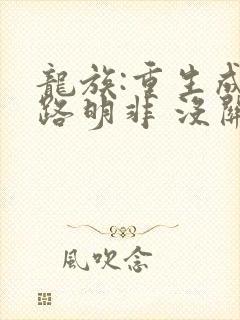 龍族:重生成
路明非 沒關
風吹念